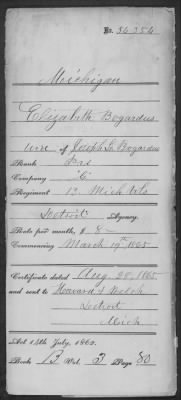 No. 56354
Michigan
Elizabeth Bogardus
of Joseph S. Bogardus
Rank
Company "C"
Regiment 13 Mich Vols
Detroit Agency.
Rate per month, $ 8—
Commencing March 19th 1865
Certificate dated Aug 28, 1865
and sent to Howard & Welch
Detroit
Mich
Act 14th July, 1862.
Book B Vol. 3 Page 80